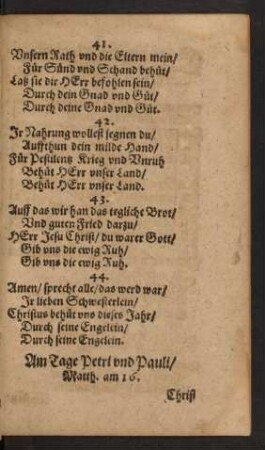 41.
Vnsern Rath vnd die Eltern mein/
Für Sünd vnd Schand behüt/
Laß sie dir HErr befohlen sein/
Durch dein Gnad vnd Güt/
Durch deine Gnad vnd Güt.
42.
Ir Nahrung wollest segnen du/
Auffthun dein milde Hand/
Für Pestilentz Krieg vnd Vnruh
Behüt HErr vnser Land/
Behüt HErr vnser Land.
43.
Auff das wir han das tegliche Brot/
Vnd guten Fried darzu/
HErr Jesu Christ/ du warer Gott/
Gib vns die ewig Ruh/
Gib vns die ewig Ruh.
44.
Amen/ sprecht alle/ das werd war/
Ir lieben Schwesterlein/
Christus behüt vns dieses Jahr/
Durch seine Engelein/
Durch seine Engelein.
Am Tage Petri vnd Pauli/
Matth. am 16.
Christ